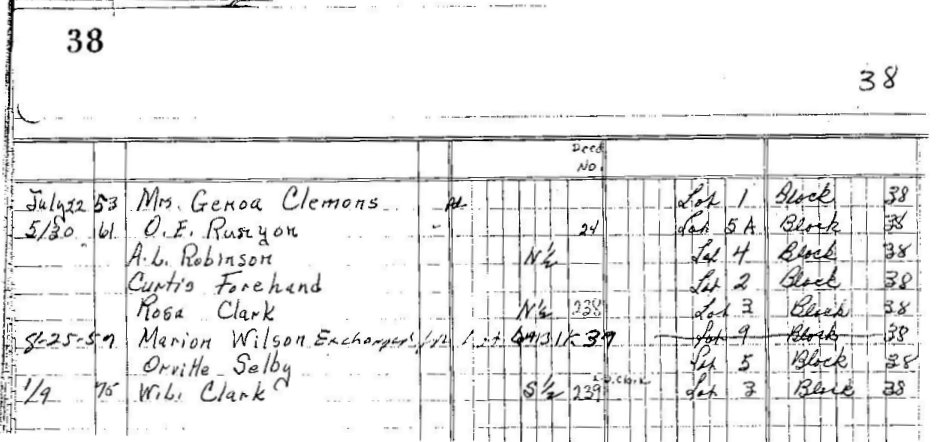 38
38
Deed
No.
July 22 53 Mrs. Genoa Clemons Pd. Lot 1 Block 38
5/30 61 O.E. Runyon " 24 Lot 5A Block 38
A.L. Robinson N½ Lot 4 Block 38
Curtis Forehand Lot 2 Block 38
Rosa Clark N½ 238 Lot 3 Block 38
8-25-59 Marion Wilson Exchanged for Lot 39 Lot 9 Block 38
Orville Selby Lot 5 Block 38
1/9 75 W.L. Clark S½ 239 Clark Lot 3 Block 38